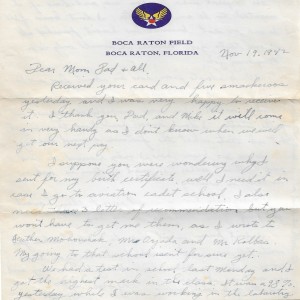 BOCA RATON FIELD
BOCA RATON, FLORIDA
Nov 19, 1942
Dear Mom, Dad & all.
Received your card and five smackeroos
yesterday and I was very happy to receive
it. I thank you, Dad, and Mike it will come
in very handy as I don't know when we will
get our next pay.
I suppose you were wondering why I
sent for my birth certificate, well I need it in
case I go to aviation cadet school, I also
need letters of recommendation but you
won't have to get me them, as I wrote to
Father Mrs and Mr Kolbes.
My going to that school isn't for sure yet.
We had a test in school last Monday and I
got the highest mark in the class. It was a
yesterday while I was working in the laboratory